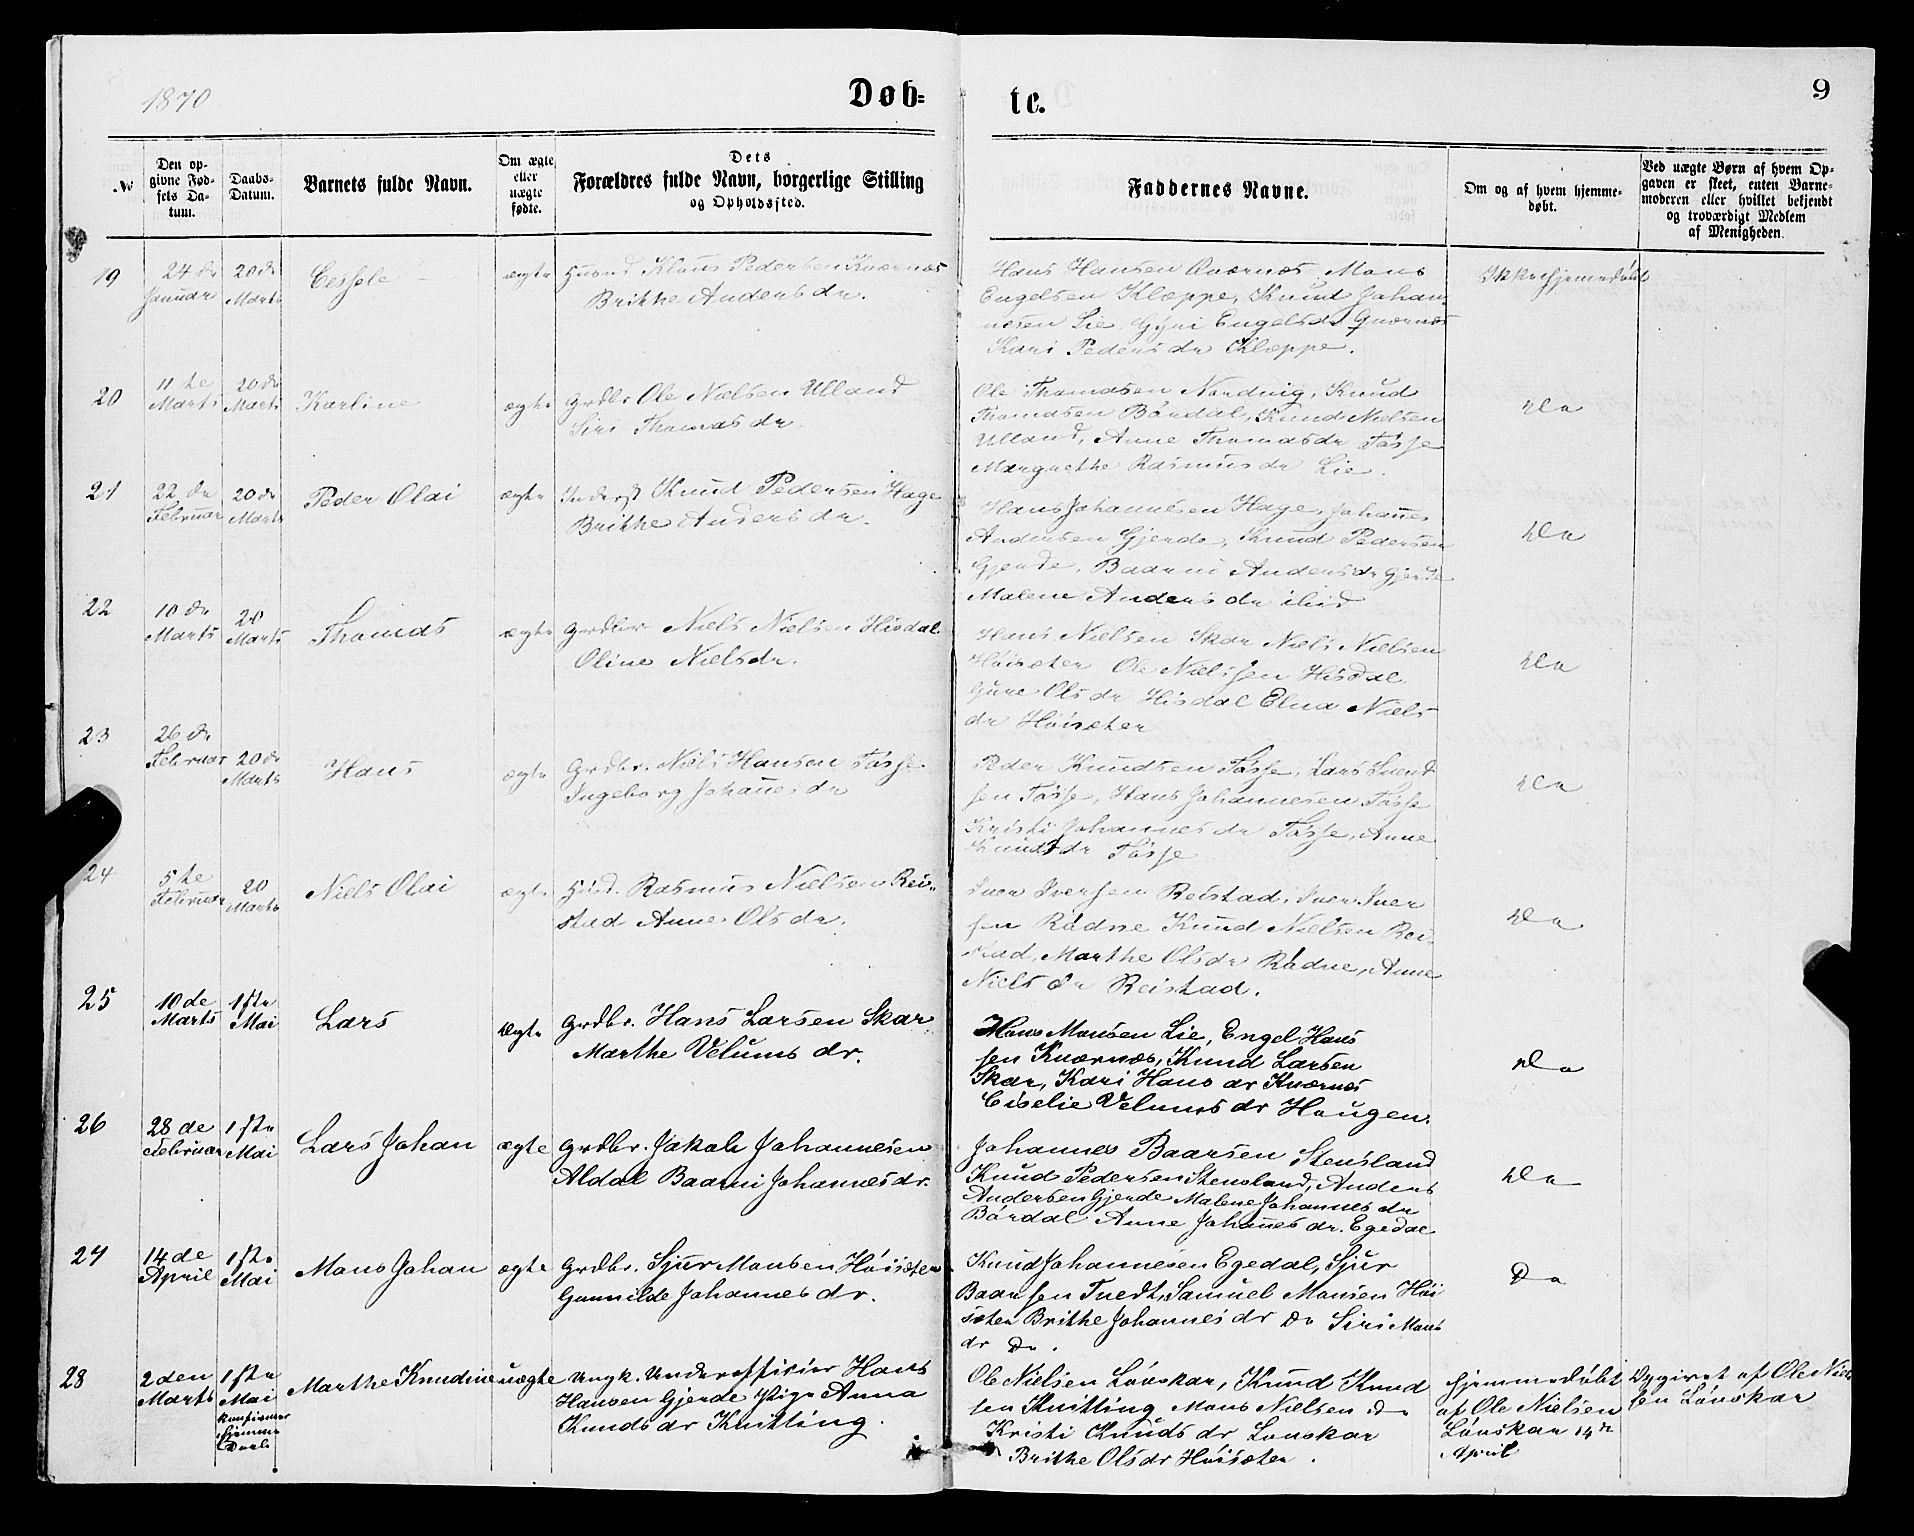 1870
Døb=
te.
9
№
Den op-
givne Fød-
sels Da-
tum.
Daabs-
Datum.
Barnets fulde Navn.
Om ægte
eller
uægte
fødte.
Dets
Forældres fulde Navn, borgerlige Stilling
og Opholdssted.
Faddernes Navne.
Om og af hvem hjemme-
døbt.
Ved uægte Børn af hvem Op-
gaven er skeet, enten Barne-
moderen eller hvilket bekjendt
og troværdigt Medlem
af Menigheden.
19
24 de
Januar
20 de
Marts
Cessele
ægte
Husmd Klaus Pedersen Kværnæs
Brithe Anders dr.
Hans Hansen Qværnæs Mons
Engelsen Klæppe, Knud Johan
nesen Lie, Gyri Engelsdr Qværnæs
Kari Peders dr Klæppe.
Ikke hjemedøbt
20
11 te
Marts
20 de
Marts
Karline
ægte
Grdbr Ole Nielsen Ulland
Siri Thomas dr.
Ole Thomasen Nordvig, Knud
Thomasen Børdal, Knud Nielsen
Ulland, Anne Thomasdr Tøsse
Margrethe Rasmus dr Lie.
Do
21
22 de
Februar
20 de
Marts
Peder Olai
ægte
Inderst Knud Pedersen Hage
Brithe Anders dr.
Hans Johannesen Hage, Johannes
Andersen Gjerde, Knud Pedersen
Gjerde, Baarni Anders dr Gjerde
Malene Anders dr ibid
Do
22
10 de
Marts
20
Marts
Thomas
ægte
Grdbr Niels Nielsen Hisdal
Oline Nielsdr.
Hans Nielsen Skar Niels Nielsen
Høisæter Ole Nielssen Hisdal
Guro Ols dr Hisdal Elna Niels
dr Høisæter
Do
23
26 de
Februar
20 de
Marts
Hans
ægte
Grdbr. Niels Hansen Tøsse
Ingeborg Johannes dr
Peder Knudsen Tøsse, Lars Svend
sen Tøsse, Hans Johannesen Tøsse
Kristi Johannes dr Tøsse, Anne
Knuds dr Tøsse
Do
24
5 te
Februar
20
Marts
Niels Olai
ægte
Husd. Rasmus Nielsen Rei-
stad Anne Ols dr.
Iver Iversen Reistad, Iver Iver
sen Rødne Knud Nielsen Rei-
stad, Marthe Olsdr Rødne, Anne
Niels dr Reistad.
Do
25
10 de
Marts
1ste
Mai
Lars
ægte
Grdbr. Hans Larsen Skar
Marthe Velums dr.
Hans Monsen Lie, Engel Hans
sen Kværnæs, Knud Larsen
Skar, Kari Hans dr Kværnæs
Ciselie Velums dr Haugen.
Do
26
28 de
Februar
1ste
Mai
Lars Johan
ægte
Grdbr. Jakob Johannesen
Aldal Baarni Johannes dr.
Johannes Baarsen Stensland
Knud Pedersen Stensland, Anders
Andersen Gjerde Malene Johannes dr
Børdal Anne Johannes dr. Egedal
Do
27
14 de
April
1ste
Mai
Mons Johan
ægte
Grdbr. Sjur Monsen Høisæter
Gunnilde Johannes dr.
Knud Johannesen Egedal, Sjur
Baarsen Tvedt, Samuel Monsen Høi
sæter Brithe Johannes dr Do Siri Mons
dr Do.
Do
28
2 den
Marts
1ste
Mai
konfirmer
hjemme
Daab
Marthe Knudine
uægte
Ungk. Underofficier Hans
Hansen Gjerde Pige Anna
Knuds dr Knitling.
Ole Nielsen Lønskar, Knud Knud
sen Knitling Mons Nielsen Do
Kristi Knuds dr Lønskar
Brithe Olsdr Høisæter.
hjemmedøbt
af Ole Nielsen
Lønskar 14 de
April
Opgivet af Ole Niel
sen Lønskar